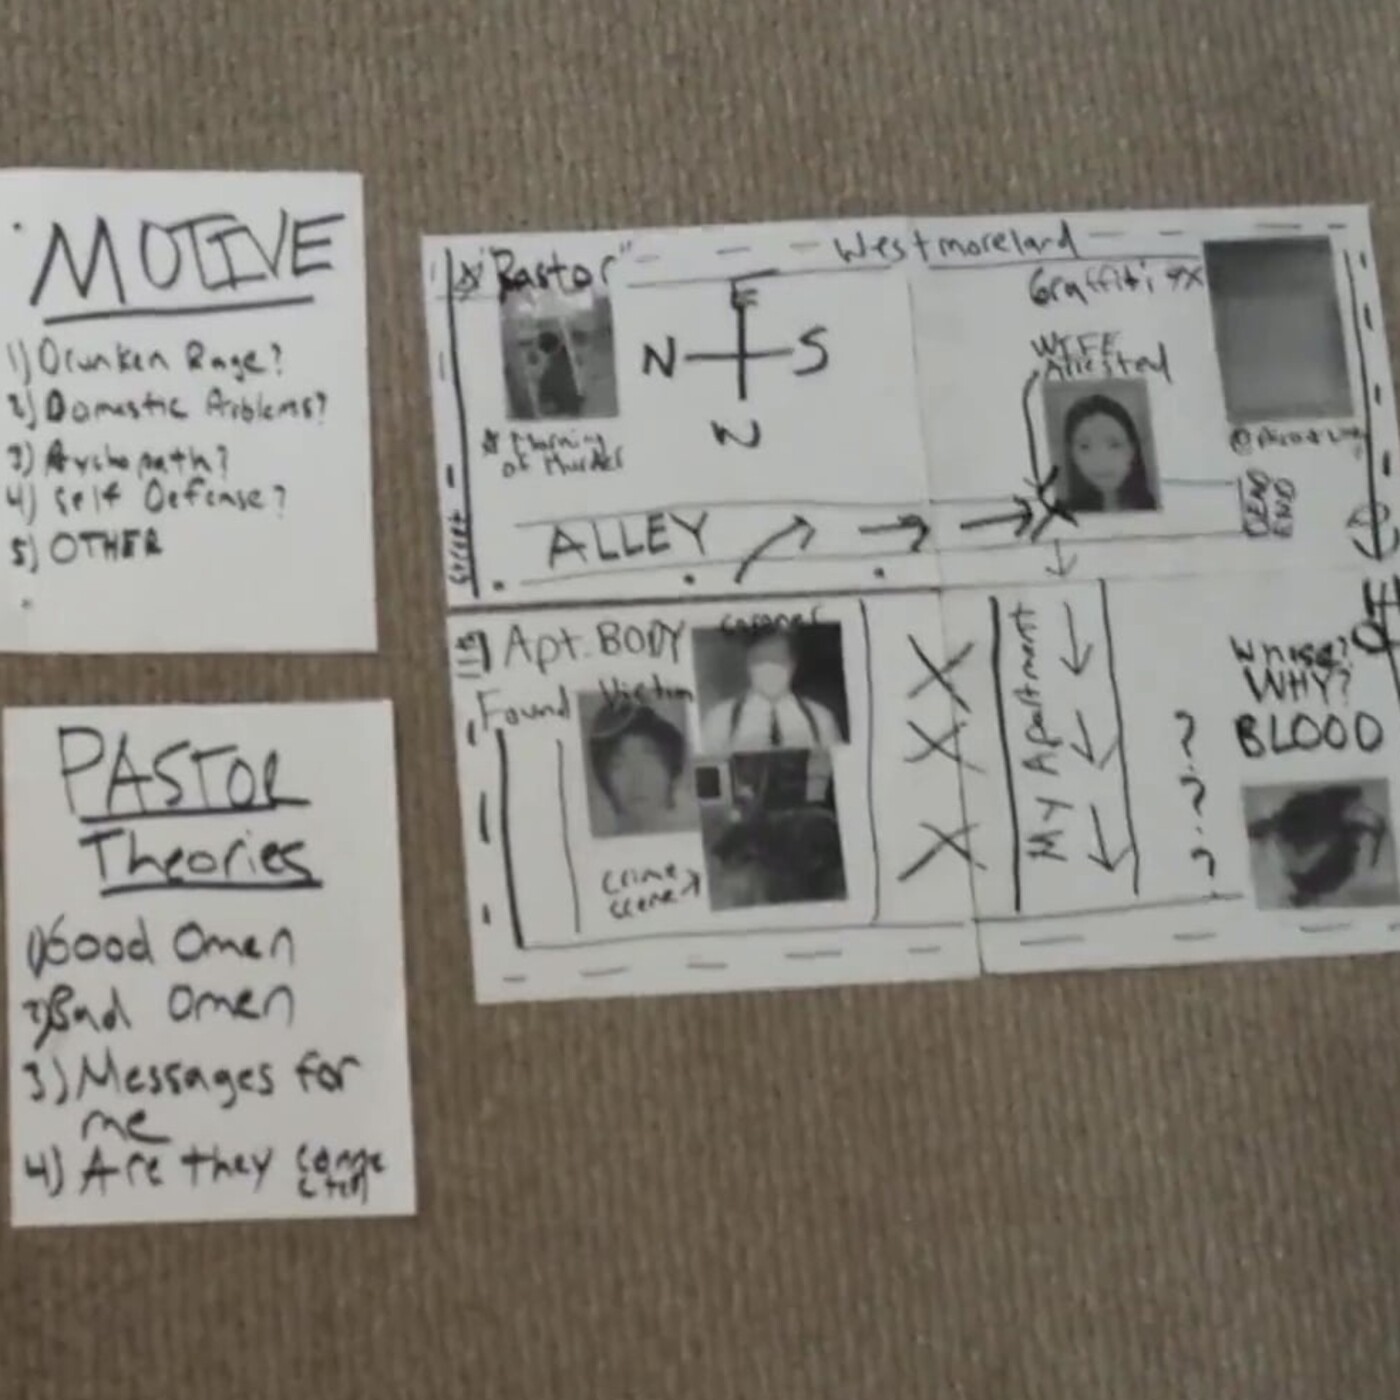 MOTIVE
1) Drunken Rage?
2) Domestic Problems?
3) Psychopath?
4) Self Defense?
5) OTHER
PASTOR
Theories
1) Good Omen
2) Bad Omen
3) Messages for
me
4) Are they
Westmoreland
"Pastor"
Graffiti
E
N S
W
WIFE
Arrested
Morning
of Murder
DEAD
END
ALLEY
Street
Apt. BODY
Found Victim
Coroner
Crime
scene
My Apartment
X
X
X
?
?
?
Whose?
WHY?
BLOOD